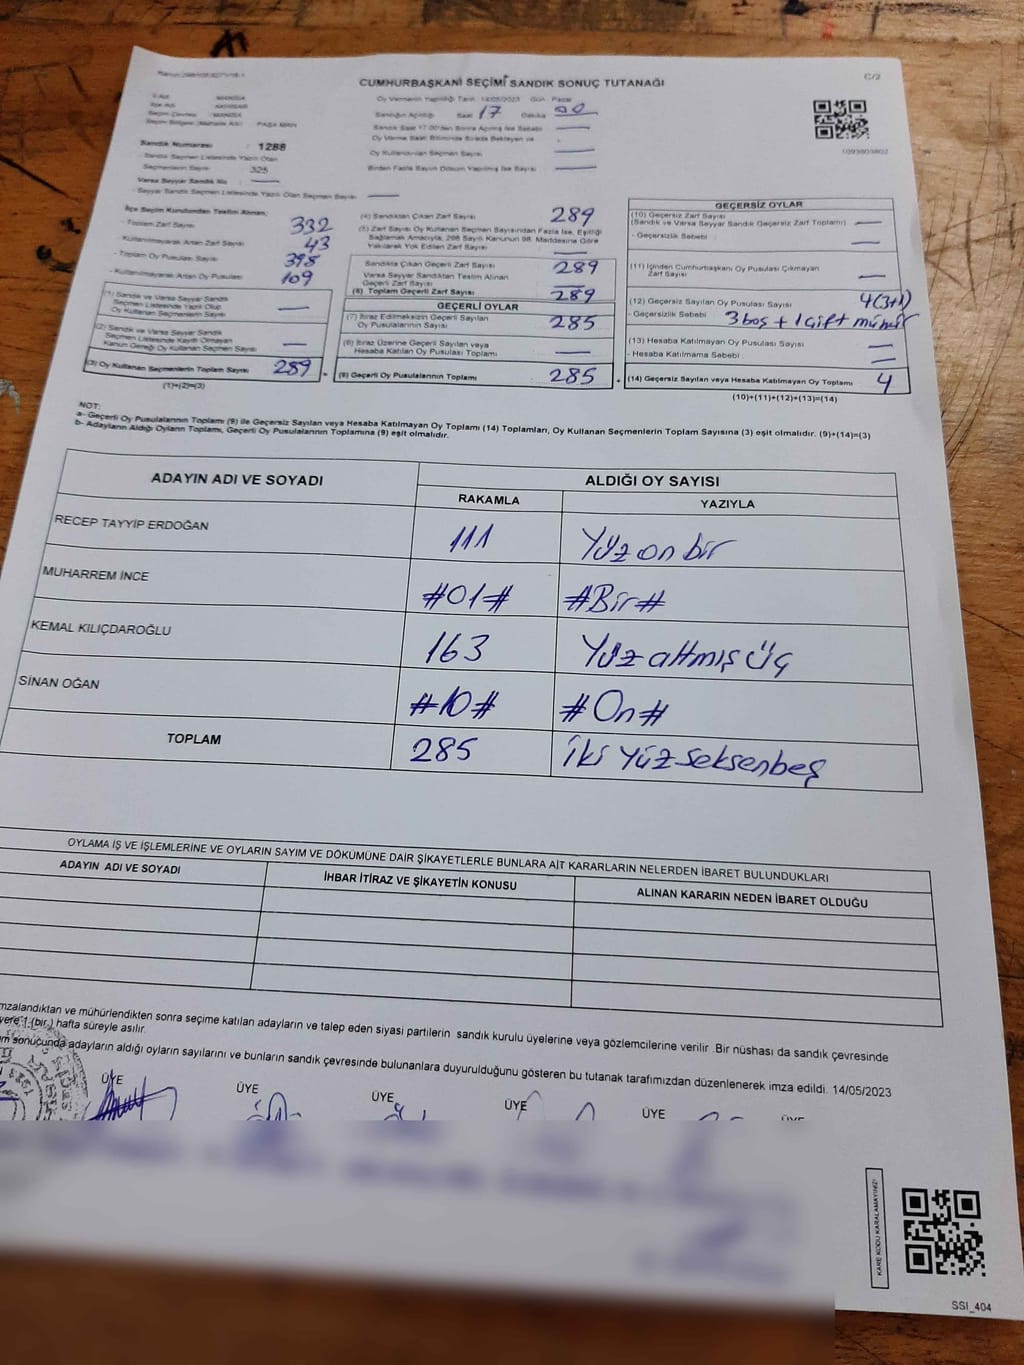 C/2
CUMHURBAŞKANI SEÇİMİ SANDIK SONUÇ TUTANAĞI
Oy Vermenin Yapıldığı Tarih: 14/05/2023 Gün: Pazar
Sandığın Açıldığı Saat 17 Dakika 00
Sandık Saat 17.00'den Sonra Açılmış İse Sebebi
Oy Kullandırılan Seçmen Sayısı
Birden Fazla Sayım Döküm Yapılmış İse Sayısı
1093803802
İl Adı : MANİSA
Sandık Numarası : 1288
- Sandık Seçmen Listesinde Yazılı Olan
Seçmenlerin Sayısı : 325
Varsa Seyyar Sandık No :
- Seyyar Sandık Seçmen Listesinde Yazılı Olan Seçmen Sayısı :
İlçe Seçim Kurulundan Teslim Alınan;
- Toplam Zarf Sayısı : 332
- Kullanılmayarak Artan Zarf Sayısı : 43
- Toplam Oy Pusulası Sayısı : 398
- Kullanılmayarak Artan Oy Pusulası : 109
(1) Sandık ve Varsa Seyyar Sandık
Seçmen Listesinde Yazılı Olup
Oy Kullanan Seçmenlerin Sayısı :
(2) Sandık ve Varsa Seyyar Sandık
Seçmen Listesinde Kaydı Olmayan
Kanun Gereği Oy Kullanan Seçmen Sayısı :
(3) Oy Kullanan Seçmenlerin Toplam Sayısı : 289
(1)+(2)=(3)
(4) Sandıktan Çıkan Zarf Sayısı : 289
(5) Zarf Sayısı Oy Kullanan Seçmen Sayısından Fazla İse, Eşitliği
Sağlamak Amacıyla, 298 Sayılı Kanunun 98. Maddesine Göre
Yakılarak Yok Edilen Zarf Sayısı :
Sandıkta Çıkan Geçerli Zarf Sayısı : 289
Varsa Seyyar Sandıktan Teslim Alınan
Geçerli Zarf Sayısı :
(6) Toplam Geçerli Zarf Sayısı : 289
GEÇERLİ OYLAR
(7) İtiraz Edilmeksizin Geçerli Sayılan
Oy Pusulalarının Sayısı : 285
(8) İtiraz Üzerine Geçerli Sayılan veya
Hesaba Katılan Oy Pusulası Toplamı :
(9) Geçerli Oy Pusulalarının Toplamı : 285
GEÇERSİZ OYLAR
(10) Geçersiz Zarf Sayısı
(Sandık ve Varsa Seyyar Sandık Geçersiz Zarf Toplamı) :
- Geçersizlik Sebebi :
(11) İçinden Cumhurbaşkanı Oy Pusulası Çıkmayan
Zarf Sayısı :
(12) Geçersiz Sayılan Oy Pusulası Sayısı : 4(3+1)
- Geçersizlik Sebebi : 3 boş + 1 çift mühür
(13) Hesaba Katılmayan Oy Pusulası Sayısı :
- Hesaba Katılmama Sebebi :
(14) Geçersiz Sayılan veya Hesaba Katılmayan Oy Toplamı : 4
(10)+(11)+(12)+(13)=(14)
NOT:
a- Geçerli Oy Pusulalarının Toplamı (9) ile Geçersiz Sayılan veya Hesaba Katılmayan Oy Toplamı (14) Toplamları, Oy Kullanan Seçmenlerin Toplam Sayısına (3) eşit olmalıdır. (9)+(14)=(3)
b- Adayların Aldığı Oyların Toplamı, Geçerli Oy Pusulalarının Toplamına (9) eşit olmalıdır.
ADAYIN ADI VE SOYADI ALDIĞI OY SAYISI
RAKAMLA YAZIYLA
RECEP TAYYİP ERDOĞAN 111 Yüz on bir
MUHARREM İNCE #01# #Bir#
KEMAL KILIÇDAROĞLU 163 Yüz altmış üç
SİNAN OĞAN #10# #On#
TOPLAM 285 İki yüz seksenbeş
OYLAMA İŞ VE İŞLEMLERİNE VE OYLARIN SAYIM VE DÖKÜMÜNE DAİR ŞİKAYETLERLE BUNLARA AİT KARARLARIN NELERDEN İBARET BULUNDUKLARI
ADAYIN ADI VE SOYADI İHBAR İTİRAZ VE ŞİKAYETİN KONUSU ALINAN KARARIN NEDEN İBARET OLDUĞU
mzalandıktan ve mühürlendikten sonra seçime katılan adayların ve talep eden siyasi partilerin sandık kurulu üyelerine veya gözlemcilerine verilir .Bir nüshası da sandık çevresinde
yere 1 (bir ) hafta süreyle asılır.
m sonucunda adayların aldığı oyların sayılarını ve bunların sandık çevresinde bulunanlara duyurulduğunu gösteren bu tutanak tarafımızdan düzenlenerek imza edildi. 14/05/2023
ÜYE ÜYE ÜYE ÜYE ÜYE ÜYE
KARE KODU KARALAMAYINIZ!
SSI_404